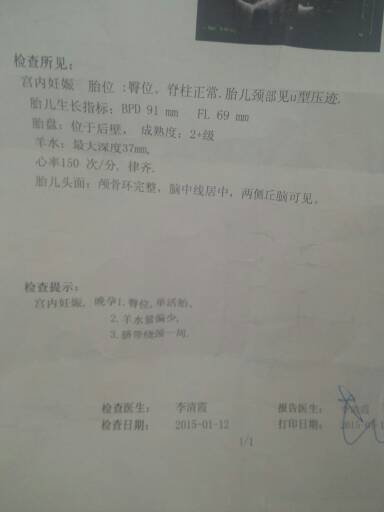 检查所见:
宫内妊娠 胎位:臀位, 脊柱正常.胎儿颈部见u型压迹.
胎儿生长指标: BPD 91 mm FL 69 mm
胎盘: 位于后壁, 成熟度: 2+级
羊水: 最大深度37mm,
心率150 次/分, 律齐.
胎儿头面: 颅骨环完整, 脑中线居中, 两侧丘脑可见。
检查提示:
宫内妊娠, 晚孕1.臀位,单活胎,
2.羊水量偏少,
3.脐带绕颈一周.
检查医生: 李清霞 报告医生:
检查日期: 2015-01-12 打印日期: 2015-
1/1